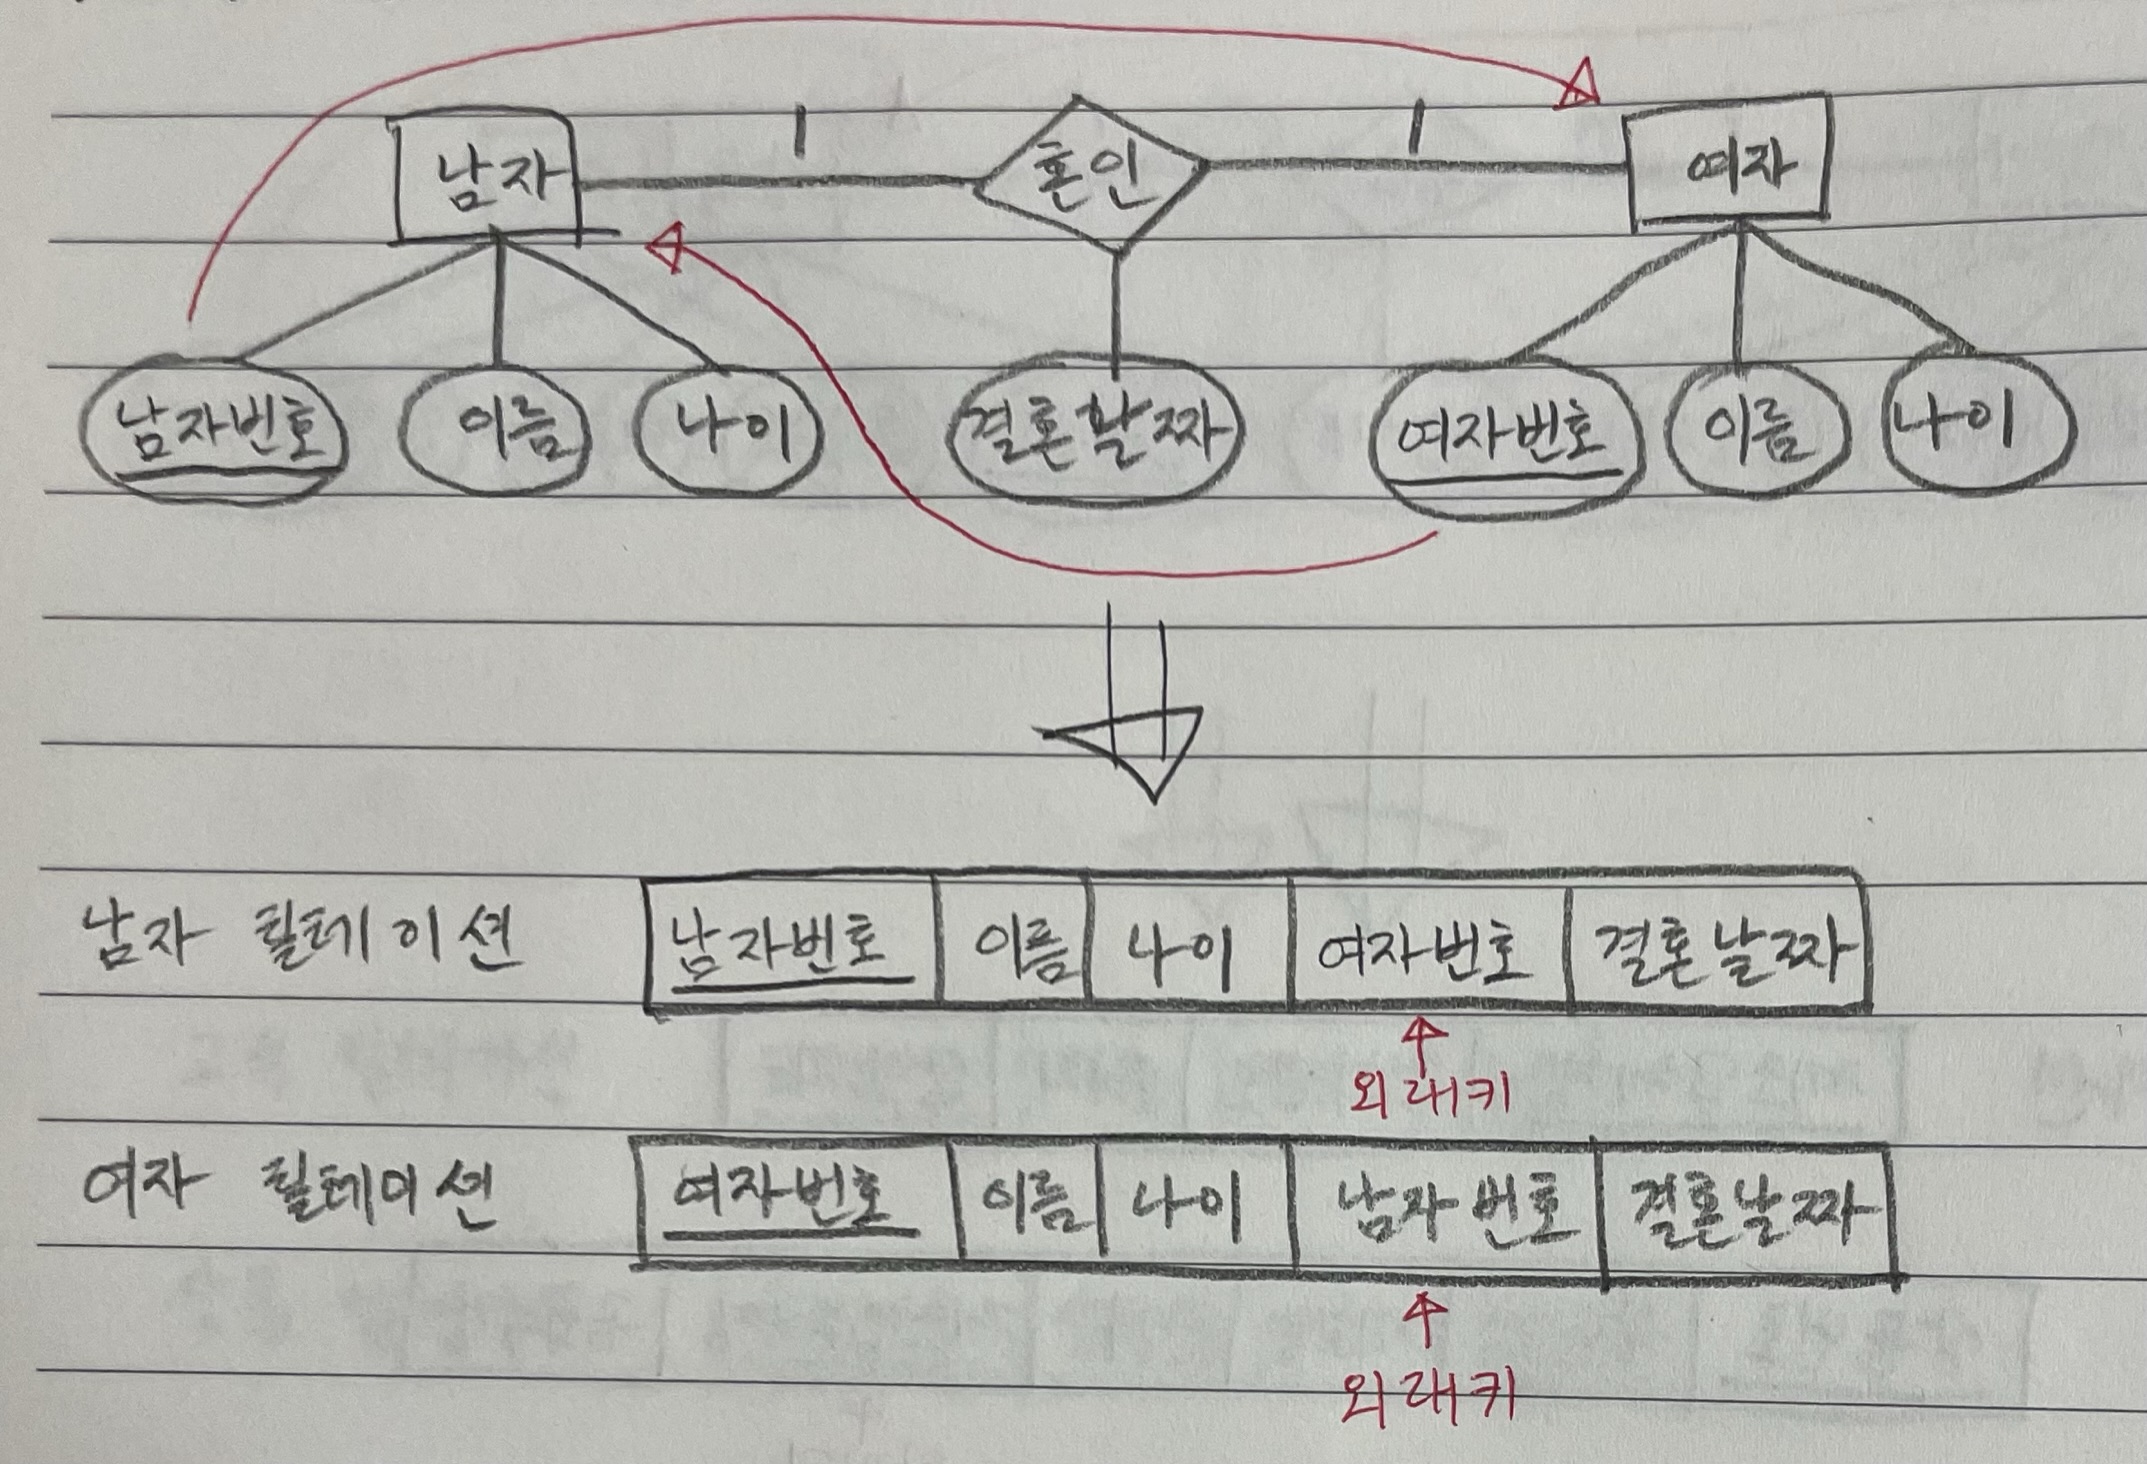 남자 1 혼인 1 여자
남자번호 이름 나이 결혼날짜 여자번호 이름 나이
남자 릴레이션 남자번호 이름 나이 여자번호 결혼날짜
외래키
여자 릴레이션 여자번호 이름 나이 남자번호 결혼날짜
외래키